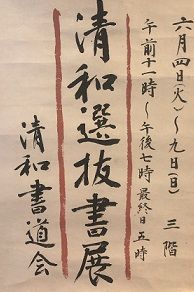 六月四日(火)～九日(日) 三階
午前十一時～午後七時 最終日五時
清和選抜書展
清和書道会